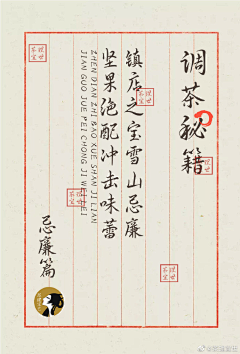 调茶秘籍
镇店之宝雪山忌廉
坚果绝配冲击味蕾
ZHEN DIAN ZHI BAO XUE SHAN JI LIAN
JIAN GUO JUE PEI CHONG JI WEI LEI
忌廉篇